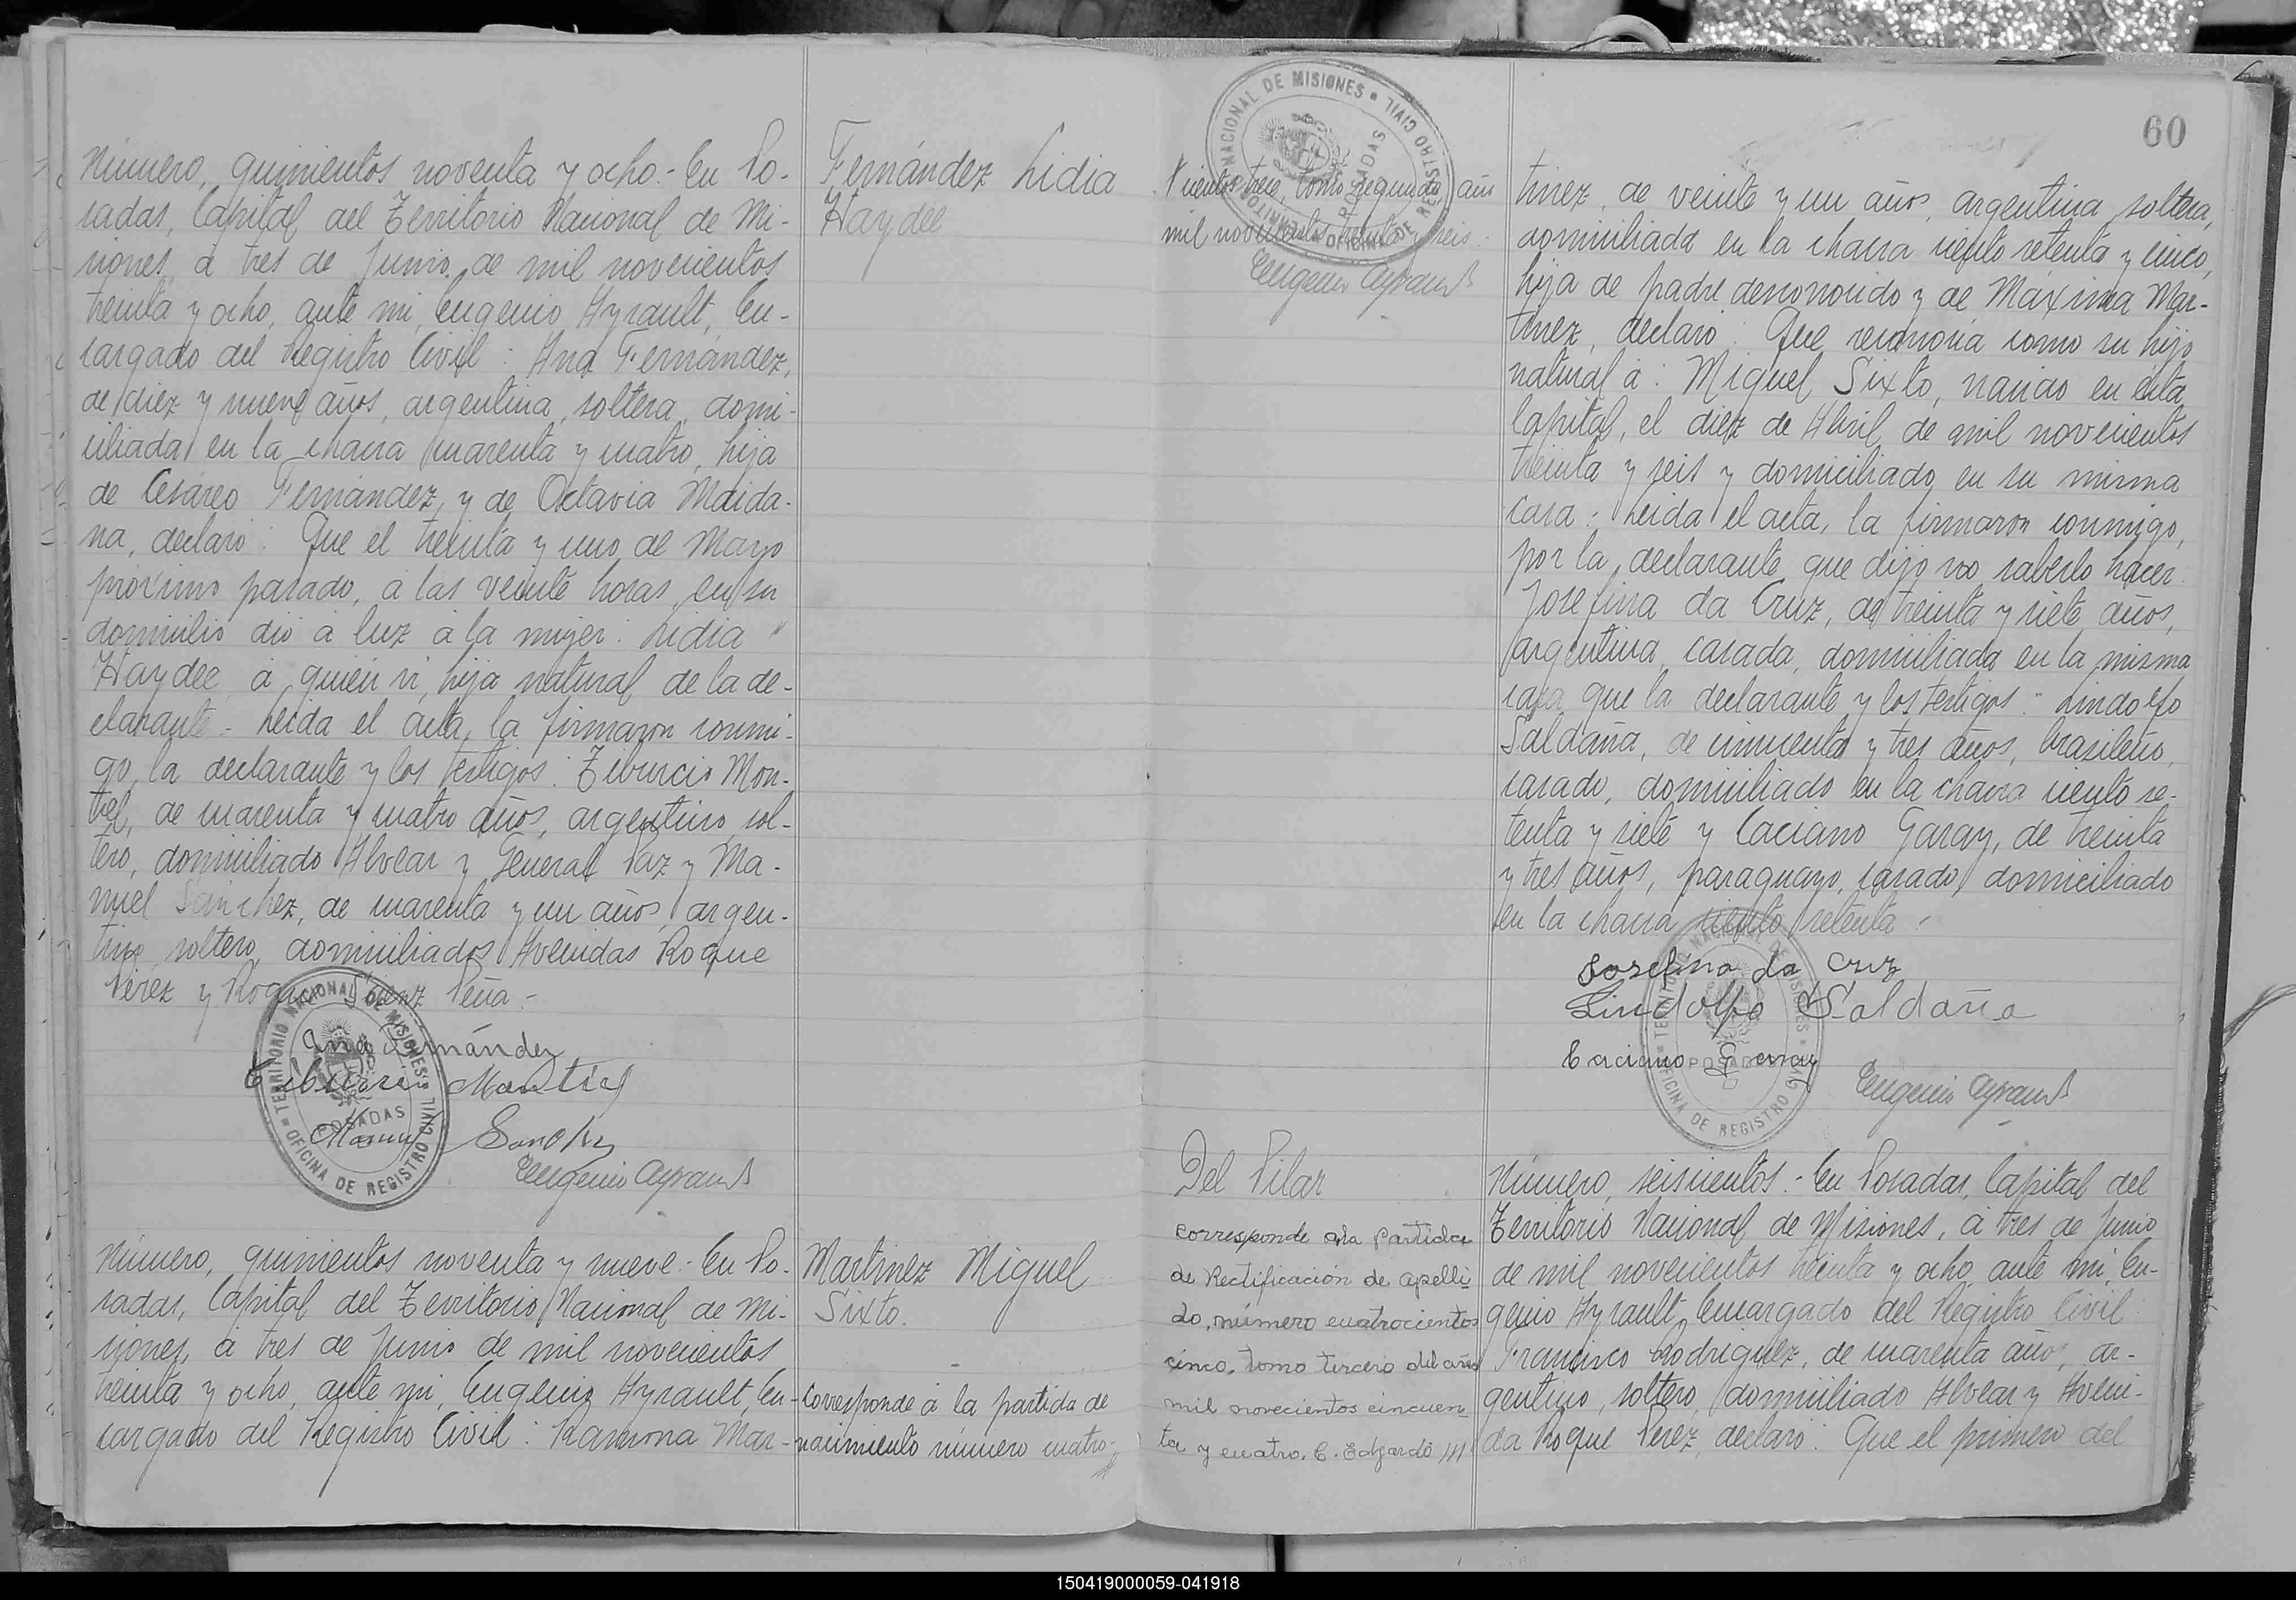 Número, quinientos noventa y ocho.- En Po-
sadas, Capital del Territorio Nacional de Mi-
siones, á tres de Junio de mil novecientos
treinta y ocho, ante mí, Eugenio Ayrault, En-
cargado del Registro Civil: Ana Fernández,
de diez y nueve años, argentina, soltera, domi-
ciliada en la chacra cuarenta y cuatro, hija
de Cesáreo Fernández y de Octavia Maida-
na, declaró: Que el treinta y uno de Mayo
próximo pasado, á las veinte horas, en su
domicilio dió á luz á la mujer: Lidia
Haydée, á quién vi, hija natural de la de-
clarante.- Leída el acta, la firmaron conmi-
go, la declarante y los testigos: Tiburcio Mon-
tiel, de cuarenta y cuatro años, argentino, sol-
tero, domiciliado Alvear y General Paz y Ma-
nuel Sánchez, de cuarenta y un años, argen-
tino, soltero, domiciliados Avenidas Roque
Pérez y Roque Sáenz Peña.-
Ana Fernandez
Tiburcio Montiel
Manuel Sanchez
Eugenio Ayrault
TERRITORIO NACIONAL DE MISIONES
POSADAS
OFICINA DE REGISTRO CIVIL
Fernández Lidia
Haydée
Número, quinientos noventa y nueve.- En Po-
sadas, Capital del Territorio Nacional de Mi-
siones, á tres de Junio de mil novecientos
treinta y ocho, ante mí, Eugenio Ayrault, En-
cargado del Registro Civil: Ramona Mar-
Martinez Miguel
Sixto.
Corresponde á la partida de
nacimiento número cuatro-
60
cientos trece, tomo segundo, año
mil novecientos treinta y seis.
Eugenio Ayrault
TERRITORIO NACIONAL DE MISIONES
POSADAS
OFICINA DE REGISTRO CIVIL
tinez, de veinte y un años, argentina, soltera,
domiciliada en la chacra ciento setenta y cinco,
hija de padre desconocido y de Máxima Mar-
tinez, declaró: Que reconocía como su hijo
natural á: Miguel Sixto, nacido en ésta
Capital, el diez de Abril de mil novecientos
treinta y seis y domiciliado en su misma
casa.- Leída el acta, la firmaron conmigo,
por la declarante que dijo no saberlo hacer
Josefina da Cruz, de treinta y siete años,
argentina, casada, domiciliada en la misma
casa que la declarante y los testigos: Lindolfo
Saldaña, de cincuenta y tres años, brasileño,
casado, domiciliado en la chacra ciento se-
tenta y siete y Caciano Garay, de treinta
y tres años, paraguayo, casado, domiciliado
en la chacra ciento setenta.-
Josefina da Cruz
Lindolfo Saldaña
Caciano Garay
Eugenio Ayrault
TERRITORIO NACIONAL DE MISIONES
POSADAS
OFICINA DE REGISTRO CIVIL
Del Pilar
Corresponde a la Partida
de Rectificación de apelli-
do, número cuatrocientos
cinco, tomo tercero del año
mil novecientos cincuen-
ta y cuatro. C. Edgardo
Número, seiscientos.- En Posadas, Capital del
Territorio Nacional de Misiones, á tres de Junio
de mil novecientos treinta y ocho, ante mí, Eu-
genio Ayrault, Encargado del Registro Civil:
Francisco Rodriguez, de cuarenta años, ar-
gentino, soltero, domiciliado Alvear y Aveni-
da Roque Pérez, declaró: Que el primero del
150419000059-041918